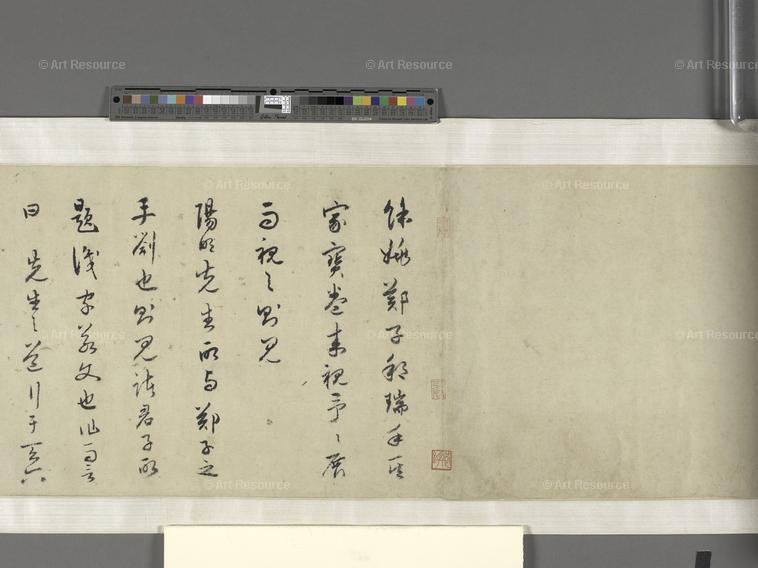 餘姚鄭子邦瑞手其
家寶卷來視予予展
而視之則見
陽明先生所與鄭子之
手劄也則見諸君子所
題識字若文也仰而言
曰 先生之道行于天下
© Art Resource
© Art Resource
© Art Resource
© Art Resource
© Art Resource
© Art Resource
© Art Resource
© Art Resource
© Art Resource
© Art Resource
© Art Resource